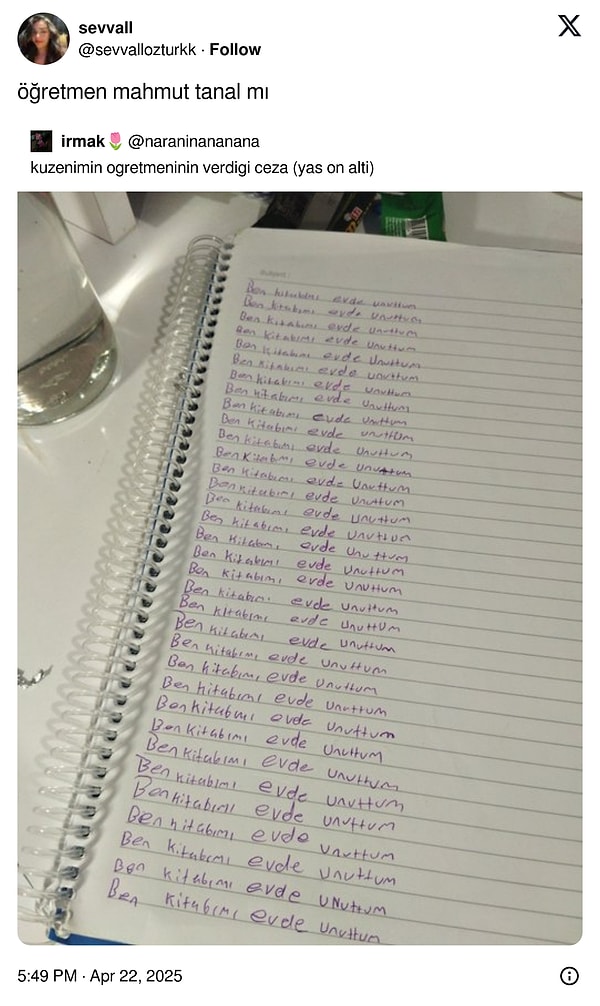 sevvall
@sevvallozturkk · Follow
öğretmen mahmut tanal mı
irmak🌷 @naraninananana
kuzenimin ogretmeninin verdigi ceza (yas on alti)
Subject :
Ben kitabımı evde unuttum
Ben kitabımı evde unuttum
Ben kitabımı evde unuttum
Ben kitabımı evde unuttum
Ben kitabımı evde Unuttum
Ben kitabımı evde unuttum
Ben kitabımı evde unuttum
Ben kitabımı evde Unuttum
Ben kitabımı evde Unuttum
Ben kitabımı evde unuttum
Ben kitabımı evde unuttum
Ben kitabımı evde unuttum
Ben kitabımı evde Unuttum
Ben kitabımı evde Unuttum
Ben kitabımı evde Unuttum
Ben kitabımı evde Unuttum
Ben kitabımı evde Unuttum
Ben kitabımı evde Unuttum
Ben kitabımı evde Unuttum
Ben kitabımı evde unuttum
Ben kitabımı evde unuttUm
Ben kitabımı evde unuttum
Ben kitabımı evde unuttum
Ben kitabımı evde unuttum
Ben kitabımı evde unuttum
Ben kitabımı evde unuttum
Ben kitabımı evde Unuttum
Ben kitabımı evde unuttum
Ben kitabımı evde unuttum
Ben kitabımı evde unuttum
Ben kitabımı evde unuttum
Ben kitabımı evde unuttum
Ben kitabımı evde UNuttum
Ben kitabımı evde unuttum
5:49 PM · Apr 22, 2025